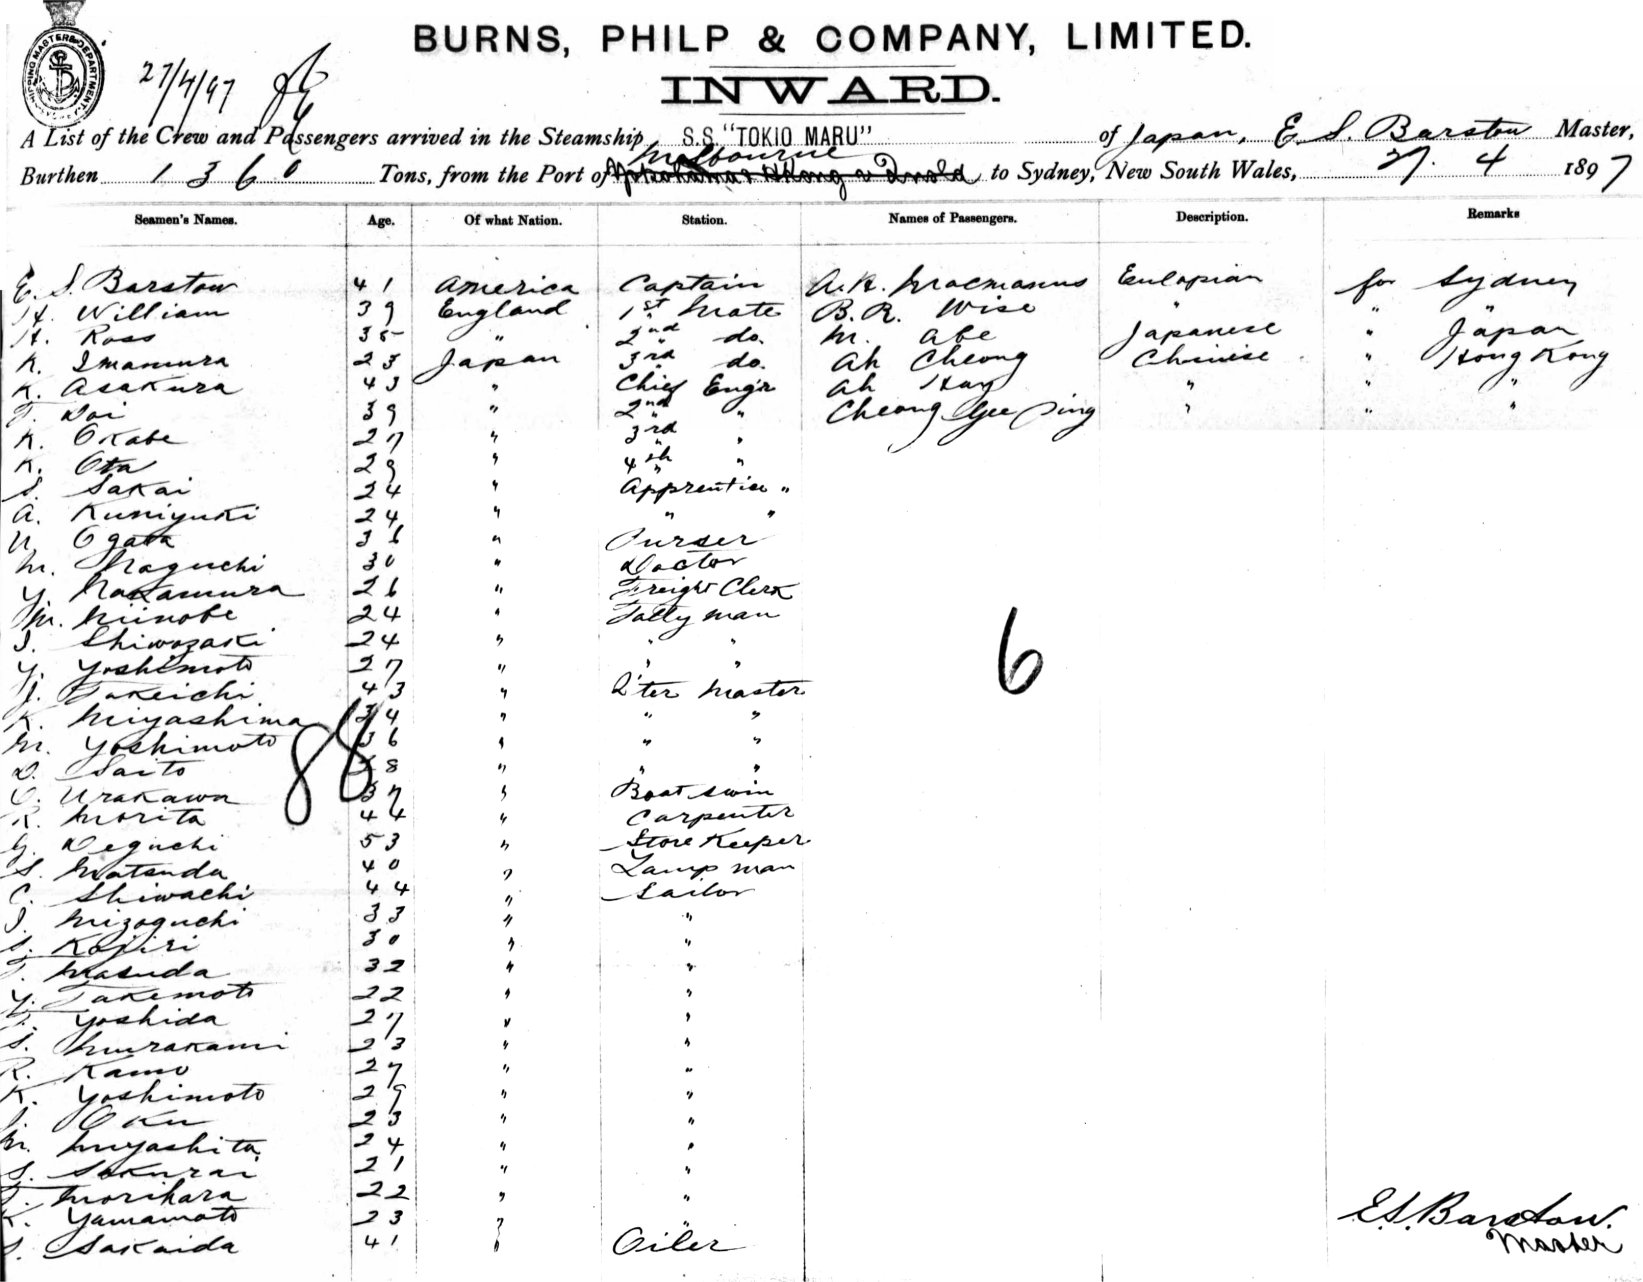 SHIPPING MASTERS DEPARTMENT
27/4/97
BURNS, PHILP & COMPANY, LIMITED.
INWARD.
A List of the Crew and Passengers arrived in the Steamship S.S "TOKIO MARU" of Japan, E S. Barstow Master,
Melbourne
Burthen 1360 Tons, from the Port of to Sydney, New South Wales, 27. 4 1897
Seamen's Names. Age. Of what Nation. Station. Names of Passengers. Description. Remarks
E. S. Barstow 41 America Captain A. Macmanus Eulopian for Sydney
H. William 39 England 1st Mate B. R. Wise " " "
H. Ross 35 " 2nd do. M. Abe Japanese " Japan
K. Imamura 23 Japan 3rd do. Ah Cheong Chinise " Hong Kong
K. Asakura 43 " Chief Engr Ah Hay " " "
T. Doi 39 " 2nd " Cheong Gee Ping " " "
K. Okabe 27 " 3rd "
K. Ota 29 " 4th "
S. Sakai 24 " Apprentice "
A. Kuniyuki 24 " " "
U. Ogata 36 " Purser
M. Naguchi 30 " Doctor
Y. Nakamura 26 " Freight Clerk
M. Niinobe 24 " Tally man
I. Shiwozaki 24 " " "
Y. Yoshimoto 27 " " "
I. Takeichi 43 " Q'ter Master
K. Miyashima 34 " " "
M. Yoshimoto 36 " " "
88
6
D. Saito 8 " " "
U. Urakawa 37 " Boat swin
K. Morita 44 " Carpenter
G. Deguchi 53 " Store Keeper
S. Matsuda 40 " Lamp man
C. Shiwachi 44 " Sailor
I. Mizoguchi 33 " "
S. Kojiri 30 " "
T. Masuda 32 " "
Y. Takemoto 22 " "
T. Yoshida 27 " "
S. Murakami 23 " "
R. Kamo 27 " "
K. Yoshimoto 29 " "
I. Oku 23 " "
M. Miyashita 24 " "
S. Sakurai 21 " "
T. Morihara 22 " "
K. Yamamoto 23 " "
S. Sakaida 41 " Oiler
E. S. Barstow.
Master